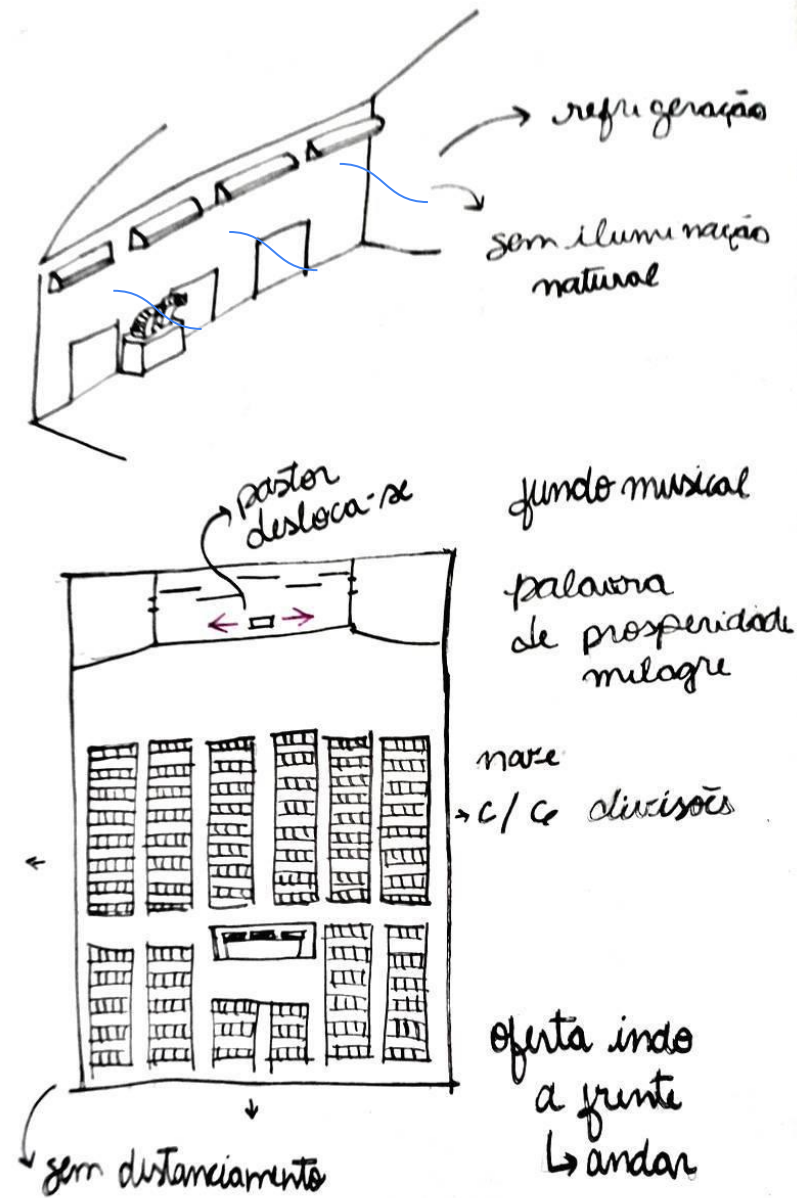 refrigeração
sem iluminação
natural
pastor
desloca-se
fundo musical
palavra
de prosperidade
milagre
nave
c/ 6 divisões
oferta indo
a frente
↳ andar
sem distanciamento